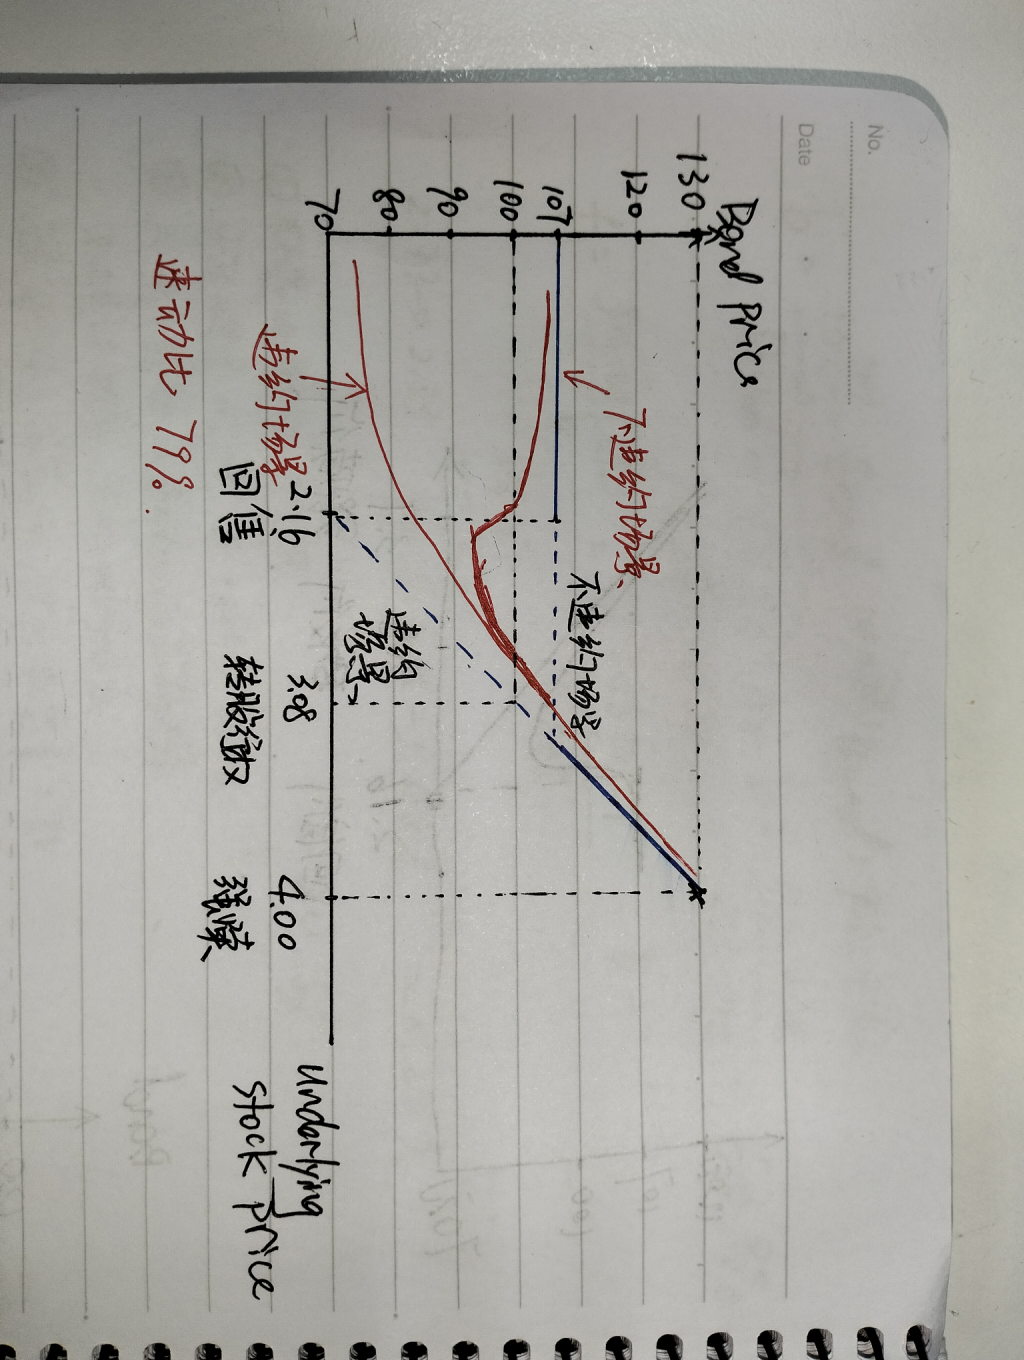 No.
Date
Bond Price
130
120
107
100
90
80
70
不违约场景
不违约场景
违约
场景
违约场景
2.16
回售
3.08
转股行权
4.00
强赎
Underlying
Stock Price
速动比 79%.